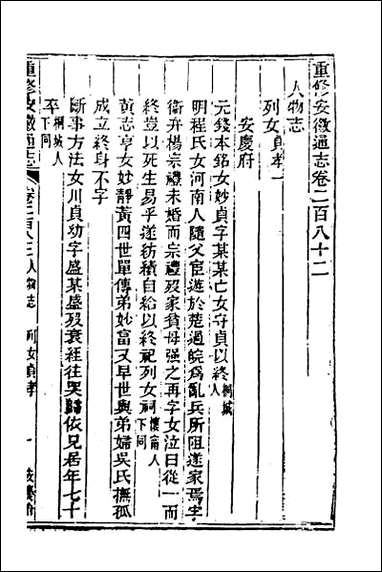 重修安徽通志卷二百八十二
人物志
列女貞孝一
安慶府
元錢本銘女妙貞字某某亡女守貞以終桐城人
明程氏女河南人隨父宦遊於楚過皖爲亂兵所阻遂家焉字
衞弁楊宗禮未婚而宗禮歿家貧母强之再字女泣曰從一而
終豈以死生易乎遂紡績自給以終祀列女祠懷甯人下同
黃志亨女妙靜黃四世單傳弟妙富又早世與弟婦吳氏撫孤
成立終身不字
斷事方法女川貞幼字盛某盛歿衰絰往哭歸依兄居年七十
卒桐城人下同
重修安徽通志 卷二百八十二 人物志 列女貞孝 一